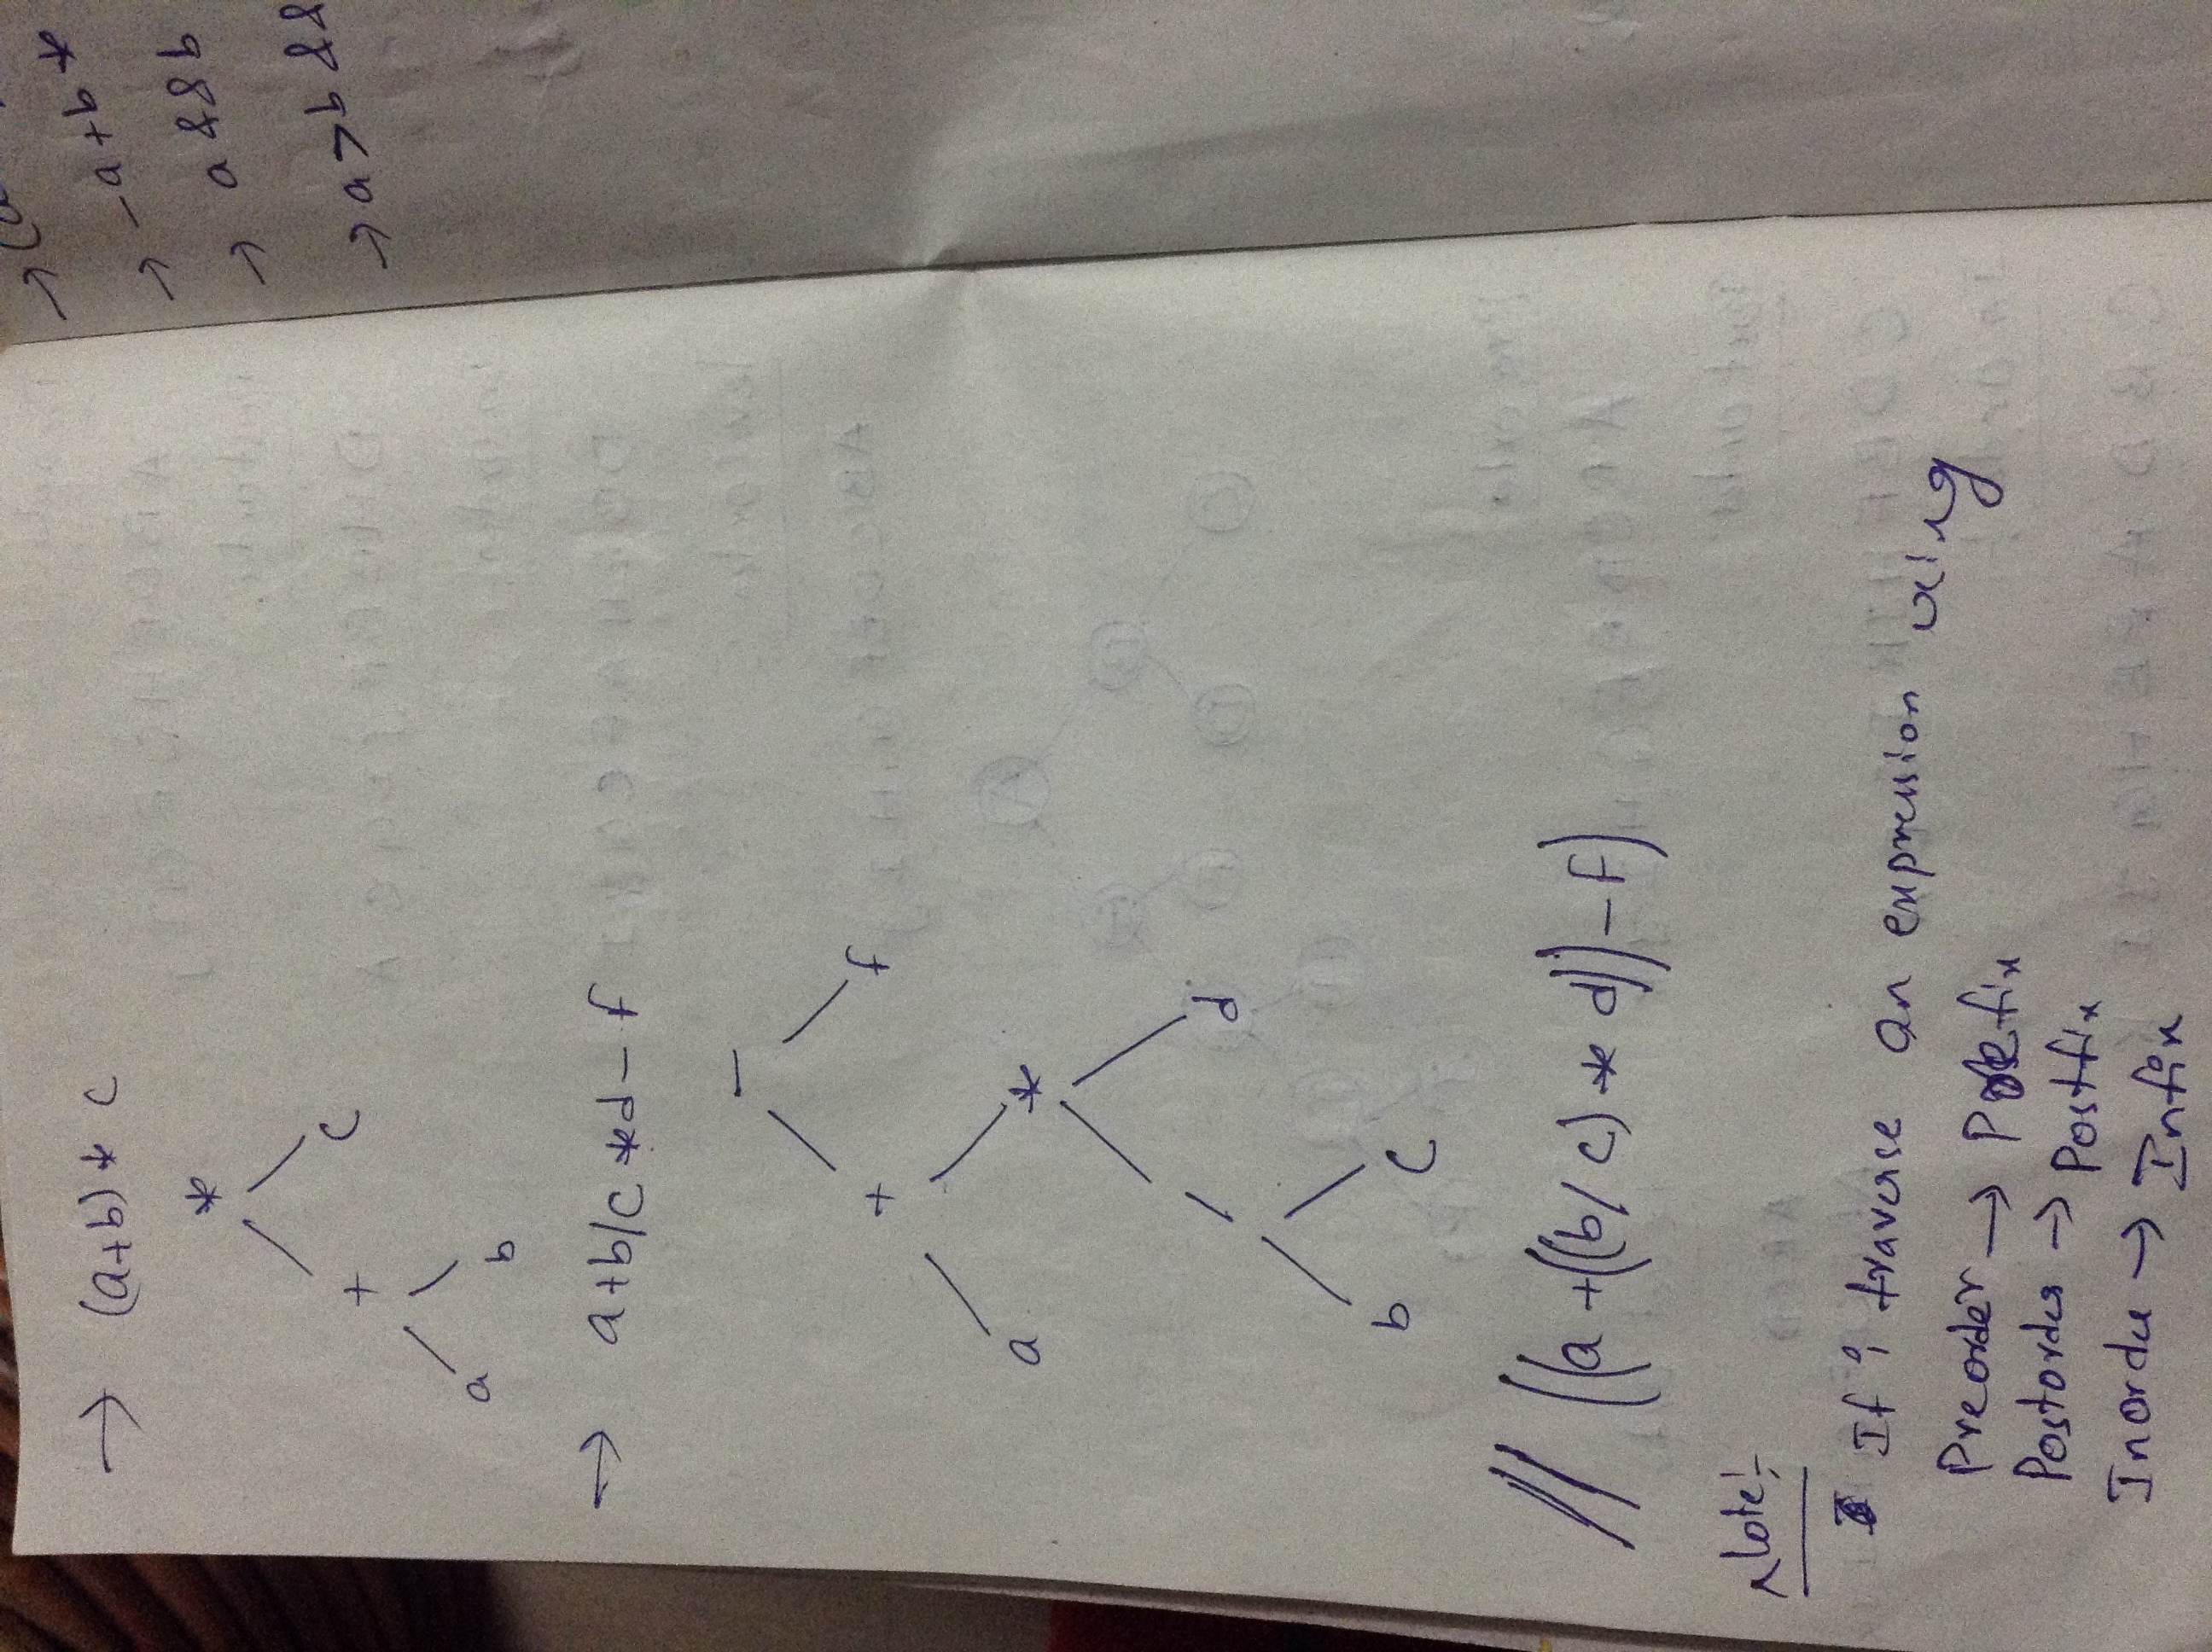 → (a+b) * c
*
+ c
a b
→ a+b/c *d - f
-
+ f
a *
/ d
b c
// ((a +((b/c) * d)) - f)
Note:-
If i traverse an expression using
Preorder → Prefix
Postorder → Postfix
Inorder → Infix
→ (a
→ -a+b *
→ a && b
→ a > b &&